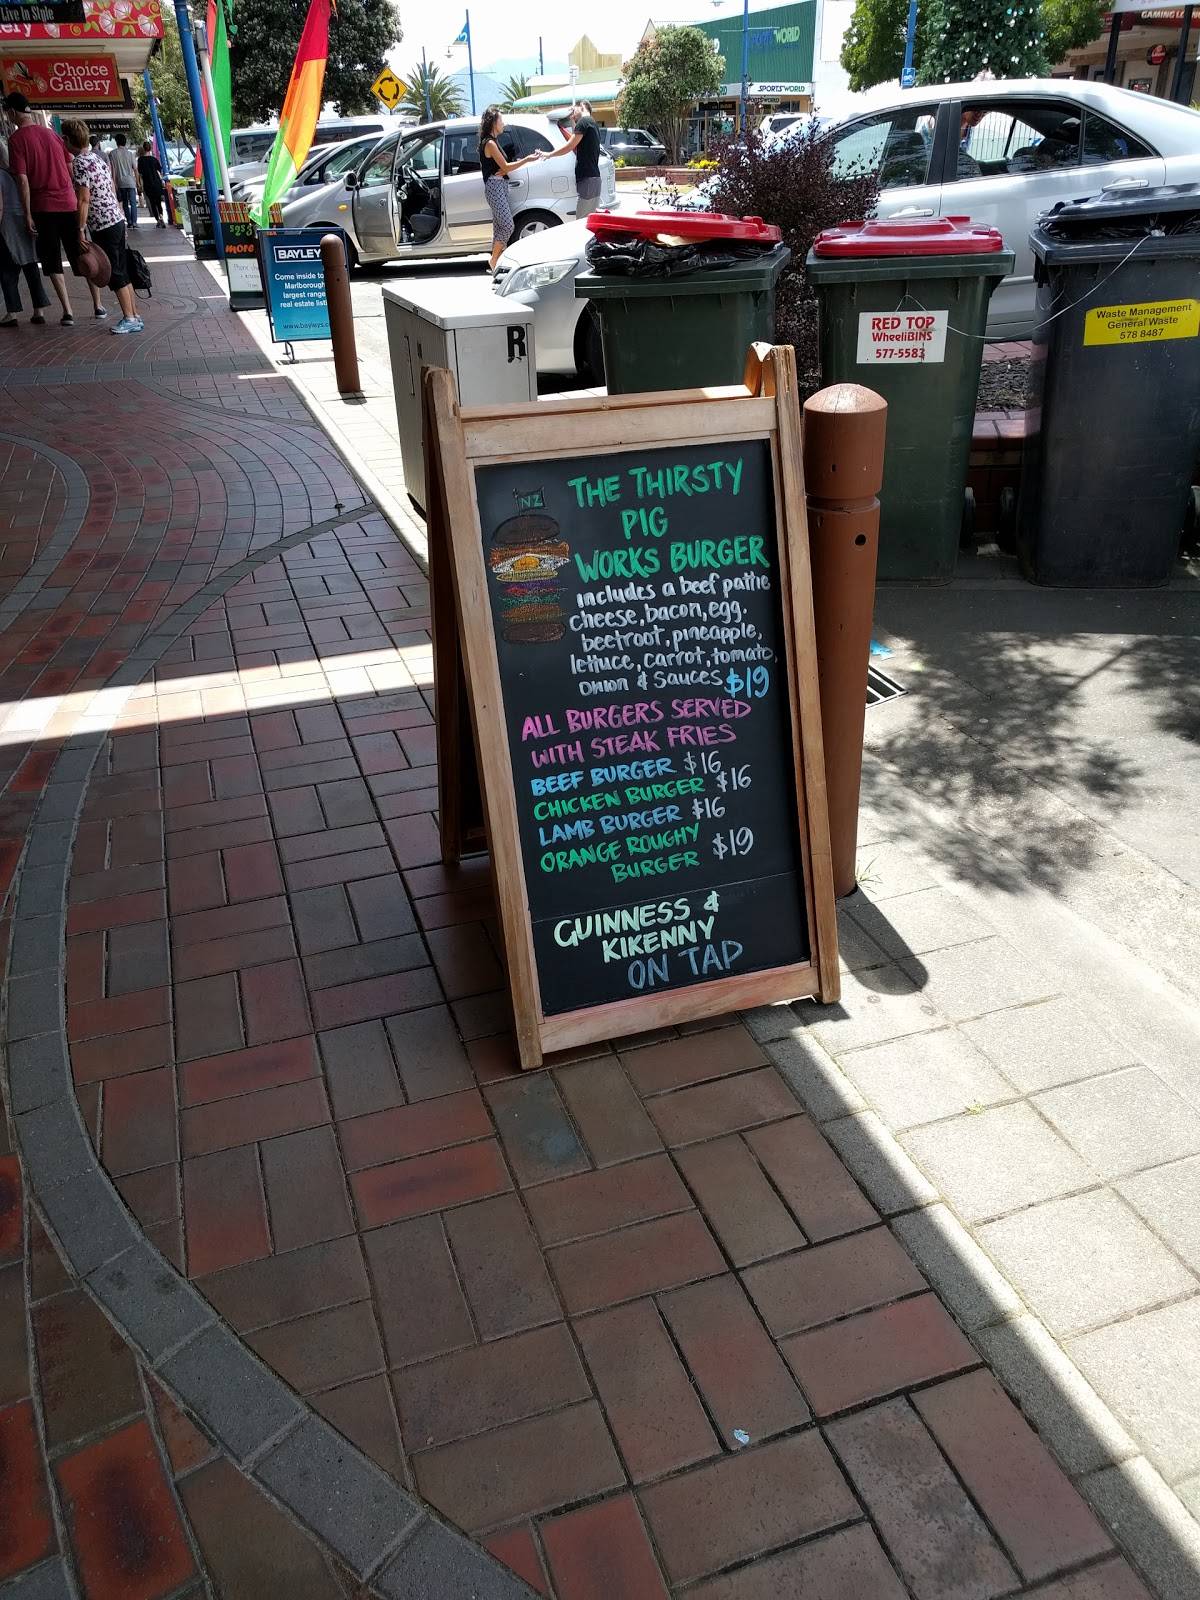 Live in Style
Choice
Gallery
SPORTSWORLD
BAYLEYS
Come inside to
Marlborough
largest range
real estate listi
more
R
RED TOP
WheeliBINS
577-5583
Waste Management
General Waste
578 8487
NZ
THE THIRSTY
PIG
WORKS BURGER
includes a beef pattie
cheese, bacon, egg.
beetroot, pineapple,
lettuce, carrot, tomato,
onion & sauces $19
ALL BURGERS SERVED
WITH STEAK FRIES
BEEF BURGER $16
CHICKEN BURGER $16
LAMB BURGER $16
ORANGE ROUGHY
BURGER $19
GUINNESS &
KIKENNY
ON TAP